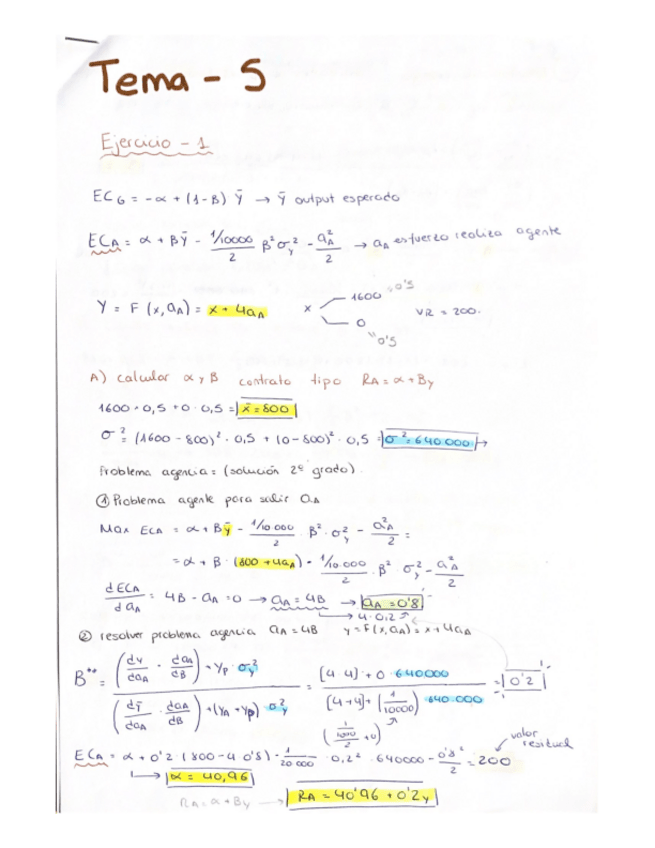 Tema - 5
Ejercicio - 1
EC_G = -α + (1-B) ȳ → ȳ output esperado
EC_A = α + Bȳ - (1/10000)/2 β² σ_y² - a_A²/2 → a_A esfuerzo realiza agente
Y = F (x, a_A) = x + 4a_A    x  1600 "0'5    VR = 200.
0 "0'5
A) calcular α y B contrato tipo R_A = α + By
1600 · 0,5 + 0 · 0,5 = x̄ = 800
σ² = (1600 - 800)² · 0,5 + (0 - 800)² · 0,5 = σ² = 640.000 →
Problema agencia = (solución 2º grado).
① Problema agente para salir a_A
Max EC_A = α + Bȳ - (1/10.000)/2 · B² · σ_y² - a_A²/2 =
= α + B · (800 + 4a_A) - (1/10.000)/2 · B² · σ_y² - a_A²/2
dEC_A/da_A = 4B - a_A = 0 → a_A = 4B → a_A = 0'8
→ 4 · 0,2
② resolver problema agencia a_A = 4B    y = F(x, a_A) = x + 4a_A
B** = ((dy/da_A · da_A/dB) + γ_P · σ_y²) / ((dȳ/da_A · da_A/dB) + (γ_A + γ_P) · σ_y²) = ([4·4] + 0 · 640000) / ([4·4] + (1/10000) · 640.000) = 0'2
((1/1000)/2 + 0)
EC_A = α + 0'2 · (800 - 4 · 0'8) - 1/20 000 · 0,2² · 640000 - 0'8²/2 = 200    valor residual
→ α = 40,96
R_A = α + By → R_A = 40'96 + 0'2y